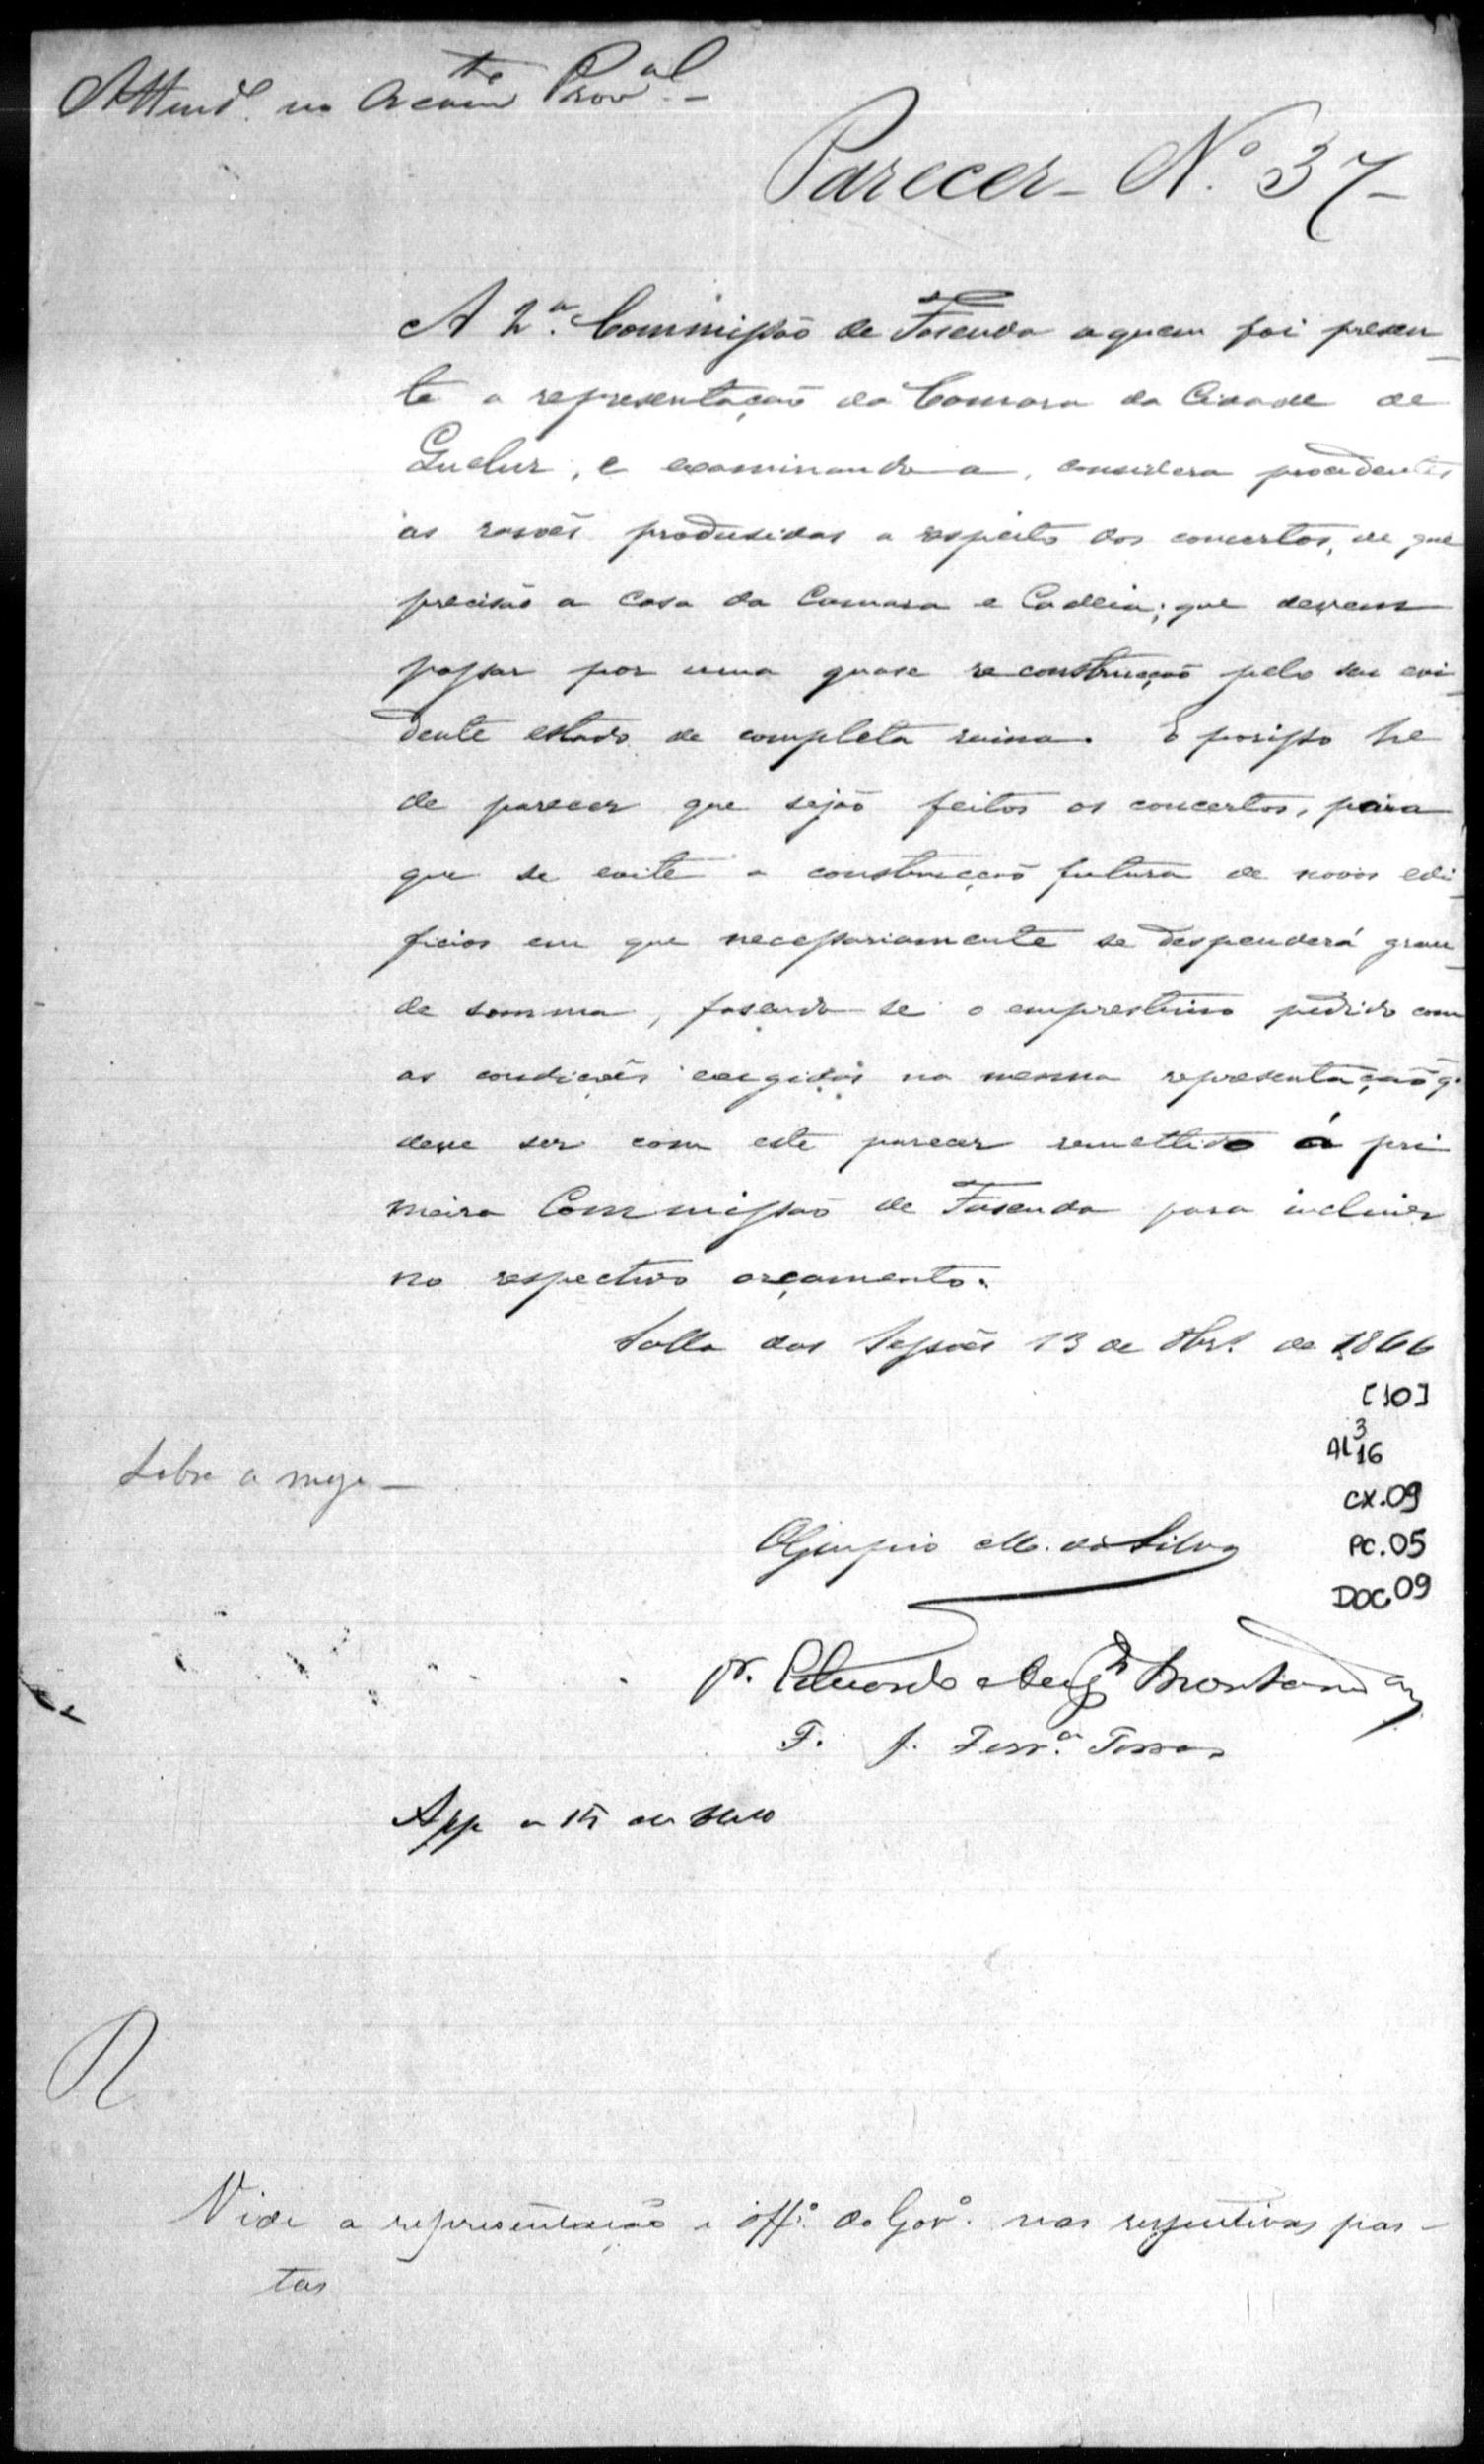 Attend.º no Orcam.to Prov.al
Parecer - N.º 37 -
A 2.ª Commissão de Fasenda a quem foi presen-
te a representação da Camara da Cidade de
Queluz, e examinando a, considera procedentes
as rasoẽs produsidas a respeito dos concertos, de que
precisão a Casa da Camara e Cadeia; que devem
passar por uma quase reconstrucção pelo seu evi-
dente estado de completa ruina. E porisso he
de parecer que sejão feitos os concertos, para
que se evite a construcção futura de novos edi-
ficios em que necessariamente se despenderá gran-
de somma, fasendo se o emprestimo pedido com
as condiçoẽs exigidas na mesma representação q.
deve ser com este parecer remettido á pri
meira Commissão de Fasenda para incluir
no respectivo orçamento.
Salla das Sessoẽs 13 de 8br.º de 1866
[10]
AL 3 16
Sobre a mesa -
CX.09
Olympio M. da Silva
PC.05
DOC 09
Dr. Eduardo Aug.to Montandon
F. J. Ferr.ª Torres
App a 15 do mesmo
R
Vide a representação e off.º do Gov.º nas respectivas pas-
tas